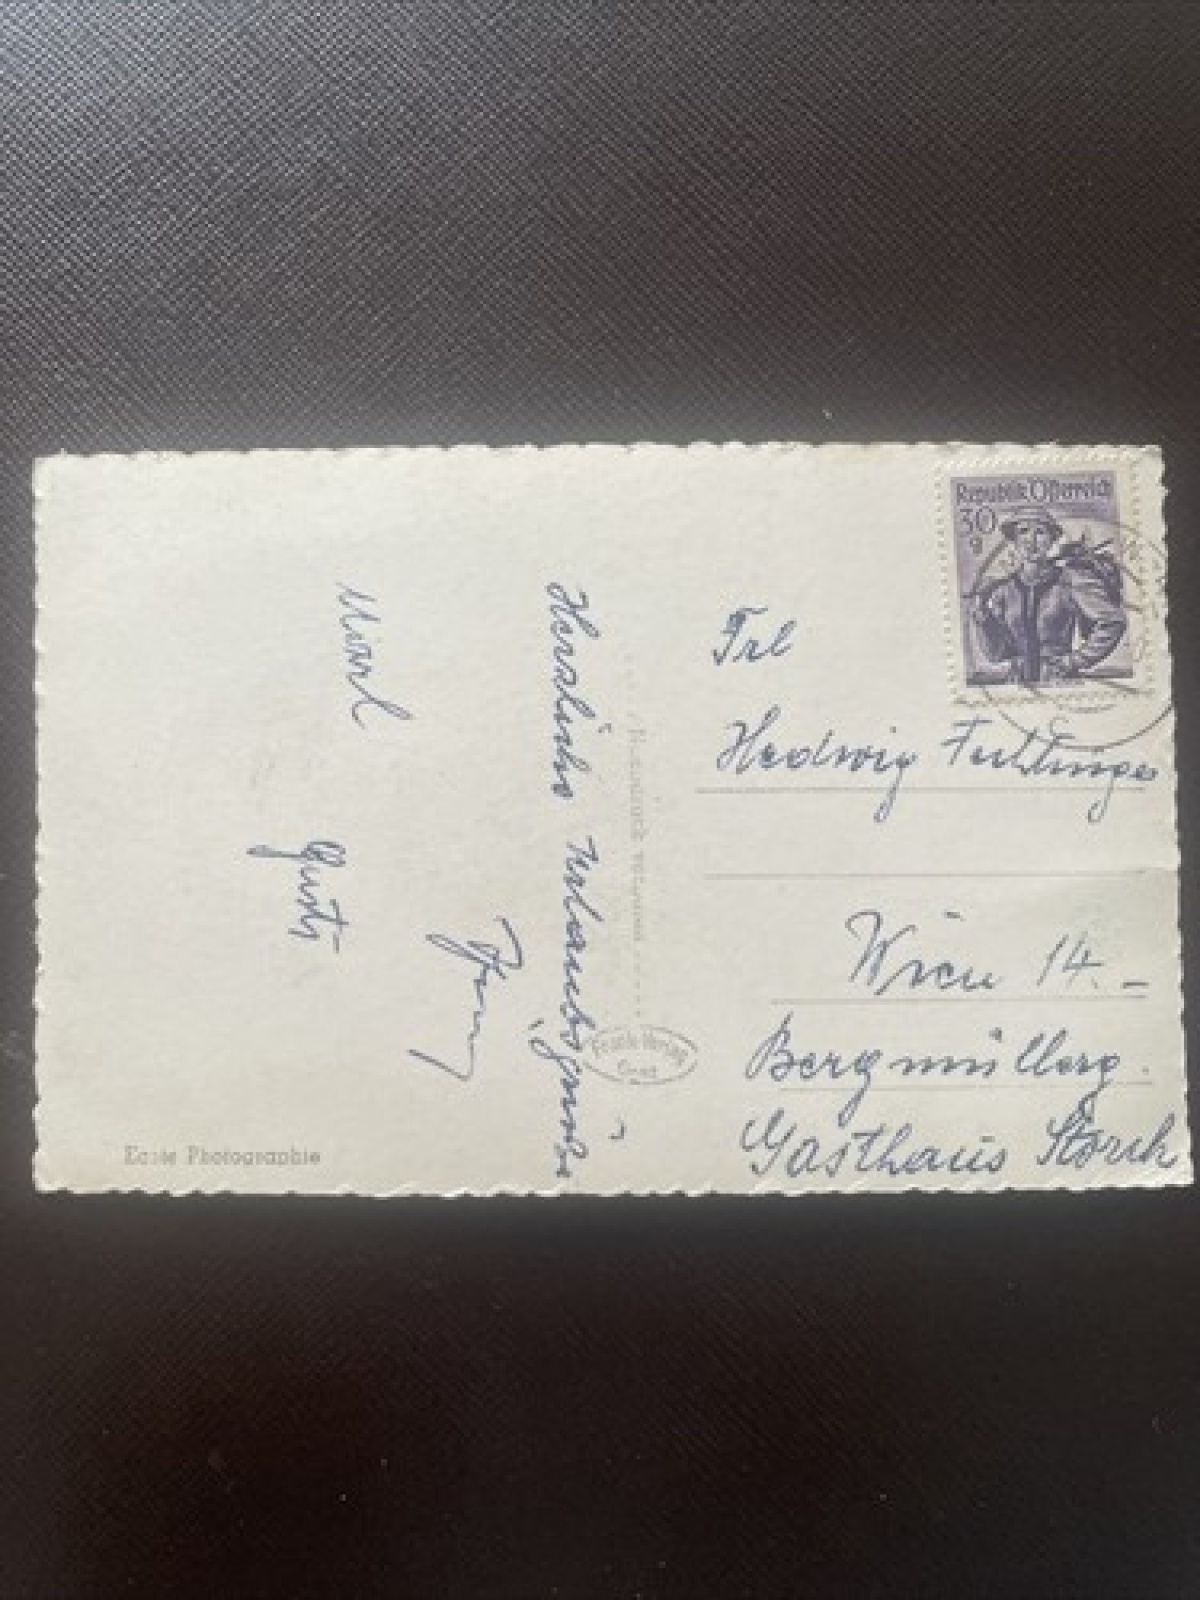 Republik Österreich
30
g
Frl
Hedwig
Wien 14.-
Bergmüllerg.
Gasthaus Storch
Herzliche Urlaubsgrüße
Gusti
Nachdruck verboten
Frank-Verlag
Graz
Echte Photographie